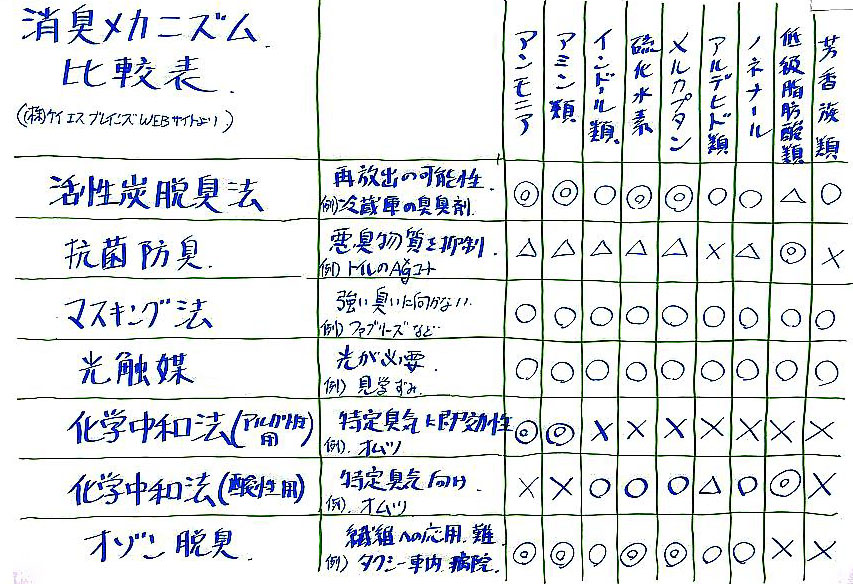 消臭メカニズム
比較表
((株)ケイエスブレインズWEBサイトより)
アンモニア
アミン類
インドール類
硫化水素
メルカプタン
アルデヒド類
ノネナール
低級脂肪酸類
芳香族類
活性炭脱臭法 再放出の可能性. ◎ ◎ ○ ◎ ◎ ○ ○ △ ○
例)冷蔵庫の臭臭剤.
抗菌防臭. 悪臭物質を抑制. △ △ △ △ △ × △ ◎ ×
例)トイレのAgコート
マスキング法 強い臭いに向かない. ○ ○ ○ ○ ○ ○ ○ ○ ○
例)ファブリーズなど.
光触媒 光が必要. ○ ○ ○ ○ ○ ○ ○ ○ ○
例)見学ずみ.
化学中和法(アルカリ性用) 特定臭気に即効性 ◎ ◎ × × × × × × ×
例).オムツ
化学中和法(酸性用) 特定臭気向け. × × ○ ○ ○ △ ○ ◎ ×
例).オムツ
オゾン脱臭. 繊維への応用.難. ◎ ◎ ○ ◎ ◎ ○ ○ × ×
例)タクシー車内.病院.